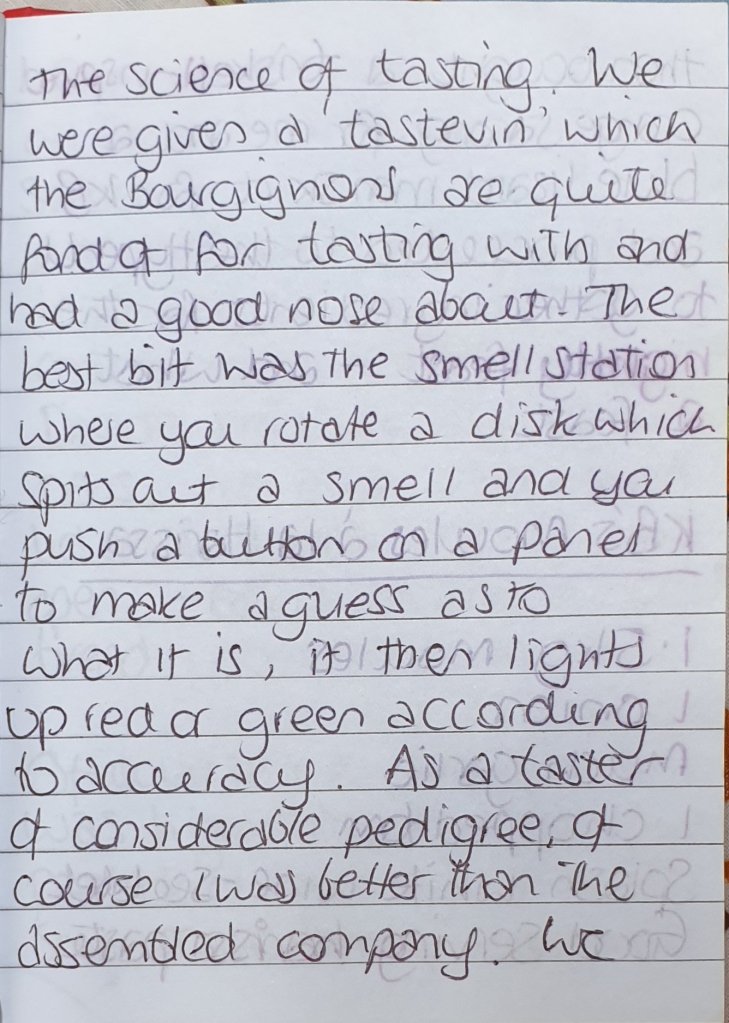 the science of tasting. We
were given a 'tastevin' which
the Bourgignons are quite
fond of for tasting with and
had a good nose about. The
best bit was the smell station
where you rotate a disk which
spits out a smell and you
push a button on a panel
to make a guess as to
what it is, it then lights
up red or green according
to accuracy. As a taster
of considerable pedigree, of
course I was better than the
assembled company. We